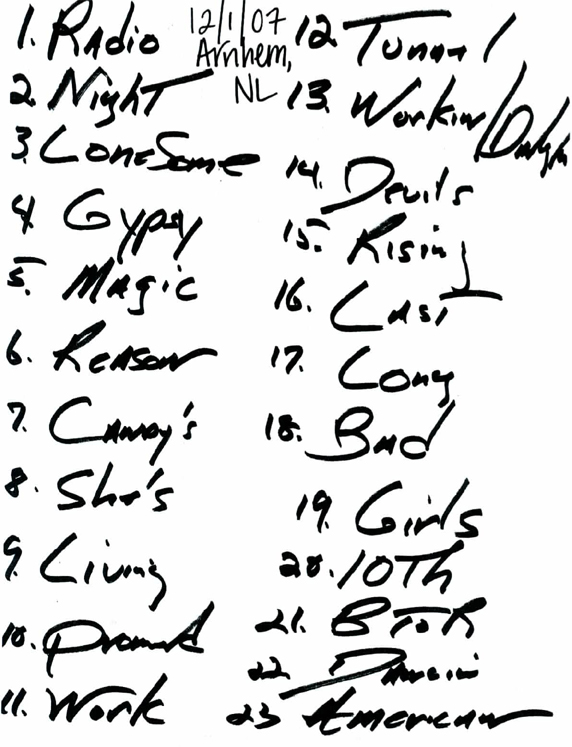 1. Radio
2. Night
3. Lonesome
4 Gypsy
5. Magic
6. Reason
7. Candy's
8. She's
9. Living
10. Promised
11. Work
12/1/07
Arnhem,
NL
12. Tunnel
13. Workin/Darlin
14. Devils
15. Rising
16. Last
17. Long
18. Bad
19. Girls
20. 10Th
21. BToR
22 Dancin
23 American